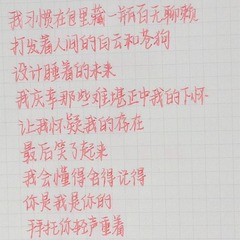 我习惯在包里藏一瓶百无聊赖
打发着人间的白云和苍狗
设计睡着的未来
我庆幸那些难堪正中我的下怀
让我怀疑我的存在
最后笑了起来
我会懂得舍得记得
你是我是你的
拜托你轻声重着